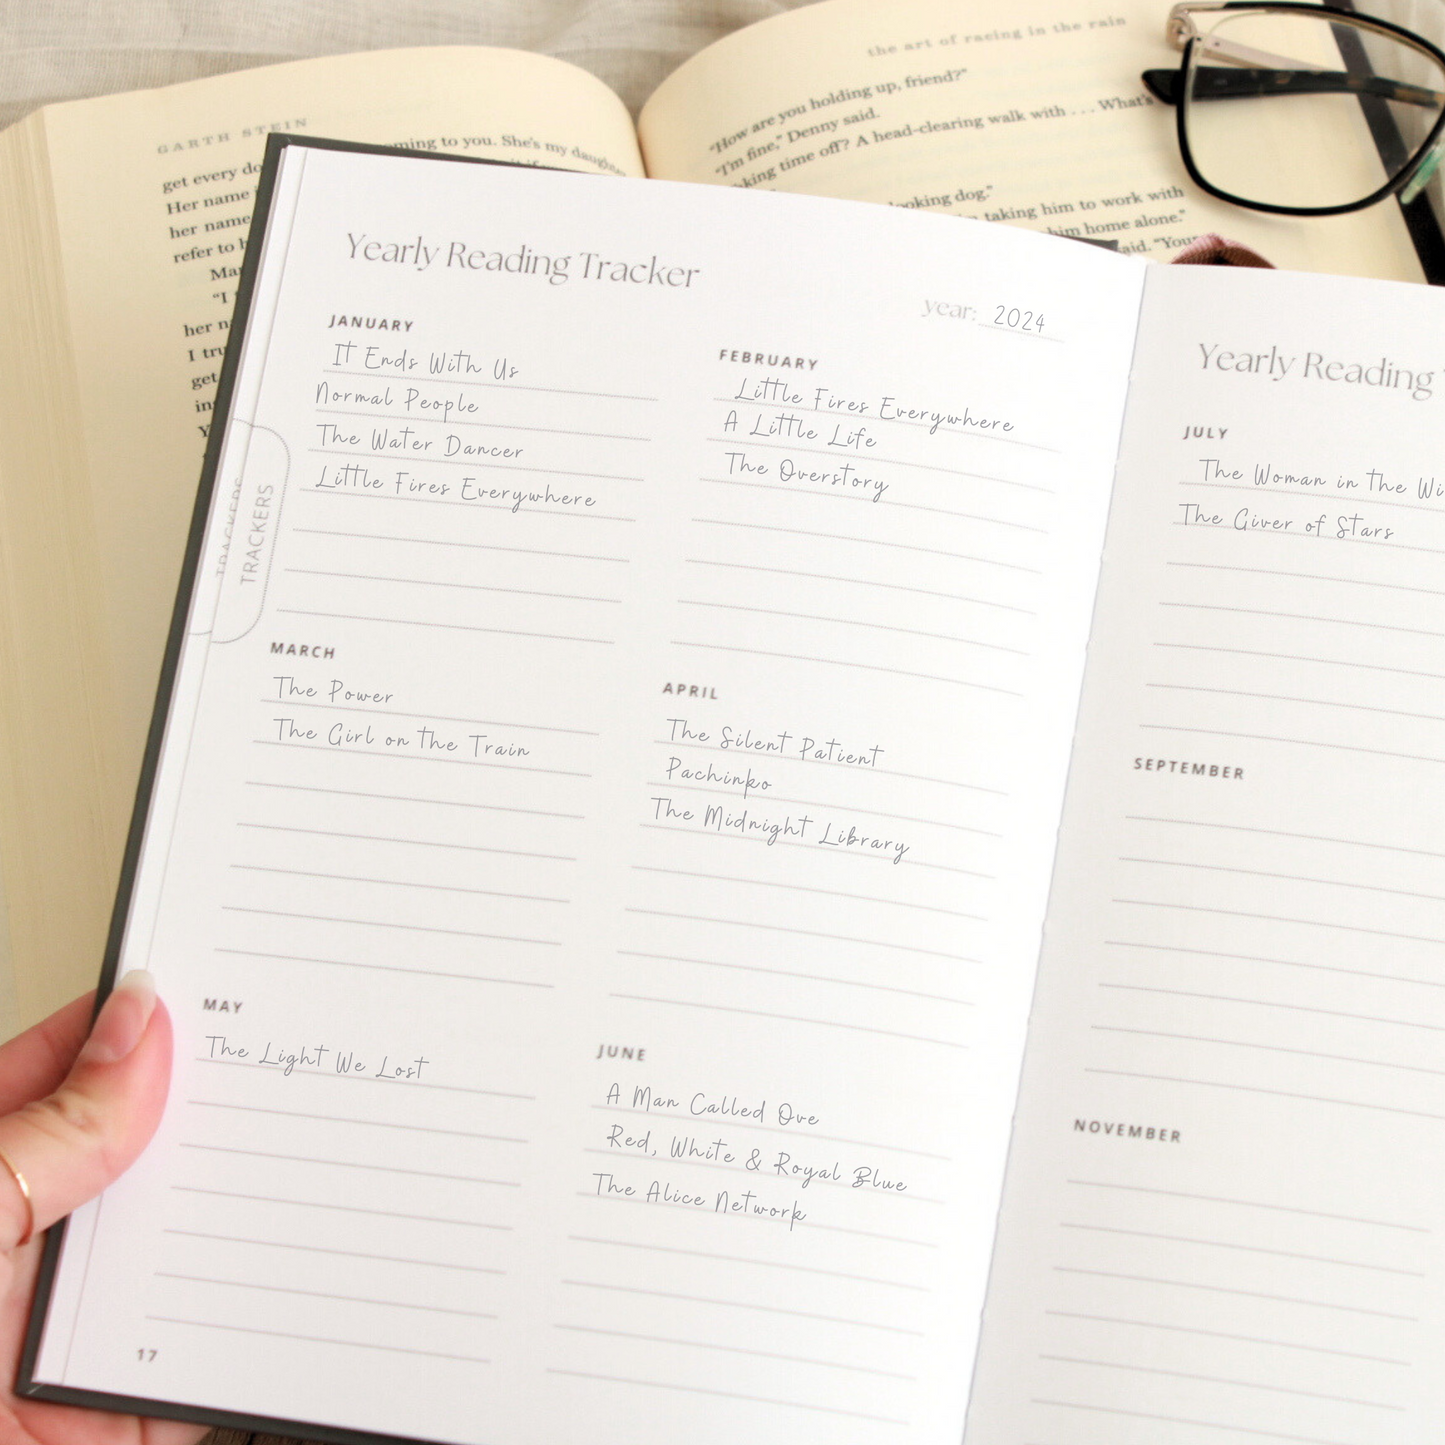 GARTH STEIN
oming to you. She's my daughter
get every do
Her name
her name
refer to h
Mar
"I
her n
I tru
get
in
the art of racing in the rain
"How are you holding up, friend?"
"I'm fine," Denny said.
king time off? A head-clearing walk with . . . What's
ooking dog."
taking him to work with
him home alone."
said. "Your
TRACKERS
TRACKERS
Yearly Reading Tracker
year: 2024
JANUARY
It Ends With Us
Normal People
The Water Dancer
Little Fires Everywhere
FEBRUARY
Little Fires Everywhere
A Little Life
The Overstory
MARCH
The Power
The Girl on the Train
APRIL
The Silent Patient
Pachinko
The Midnight Library
MAY
The Light We Lost
JUNE
A Man Called Ove
Red, White & Royal Blue
The Alice Network
17
Yearly Reading
JULY
The Woman in the Wi
The Giver of Stars
SEPTEMBER
NOVEMBER